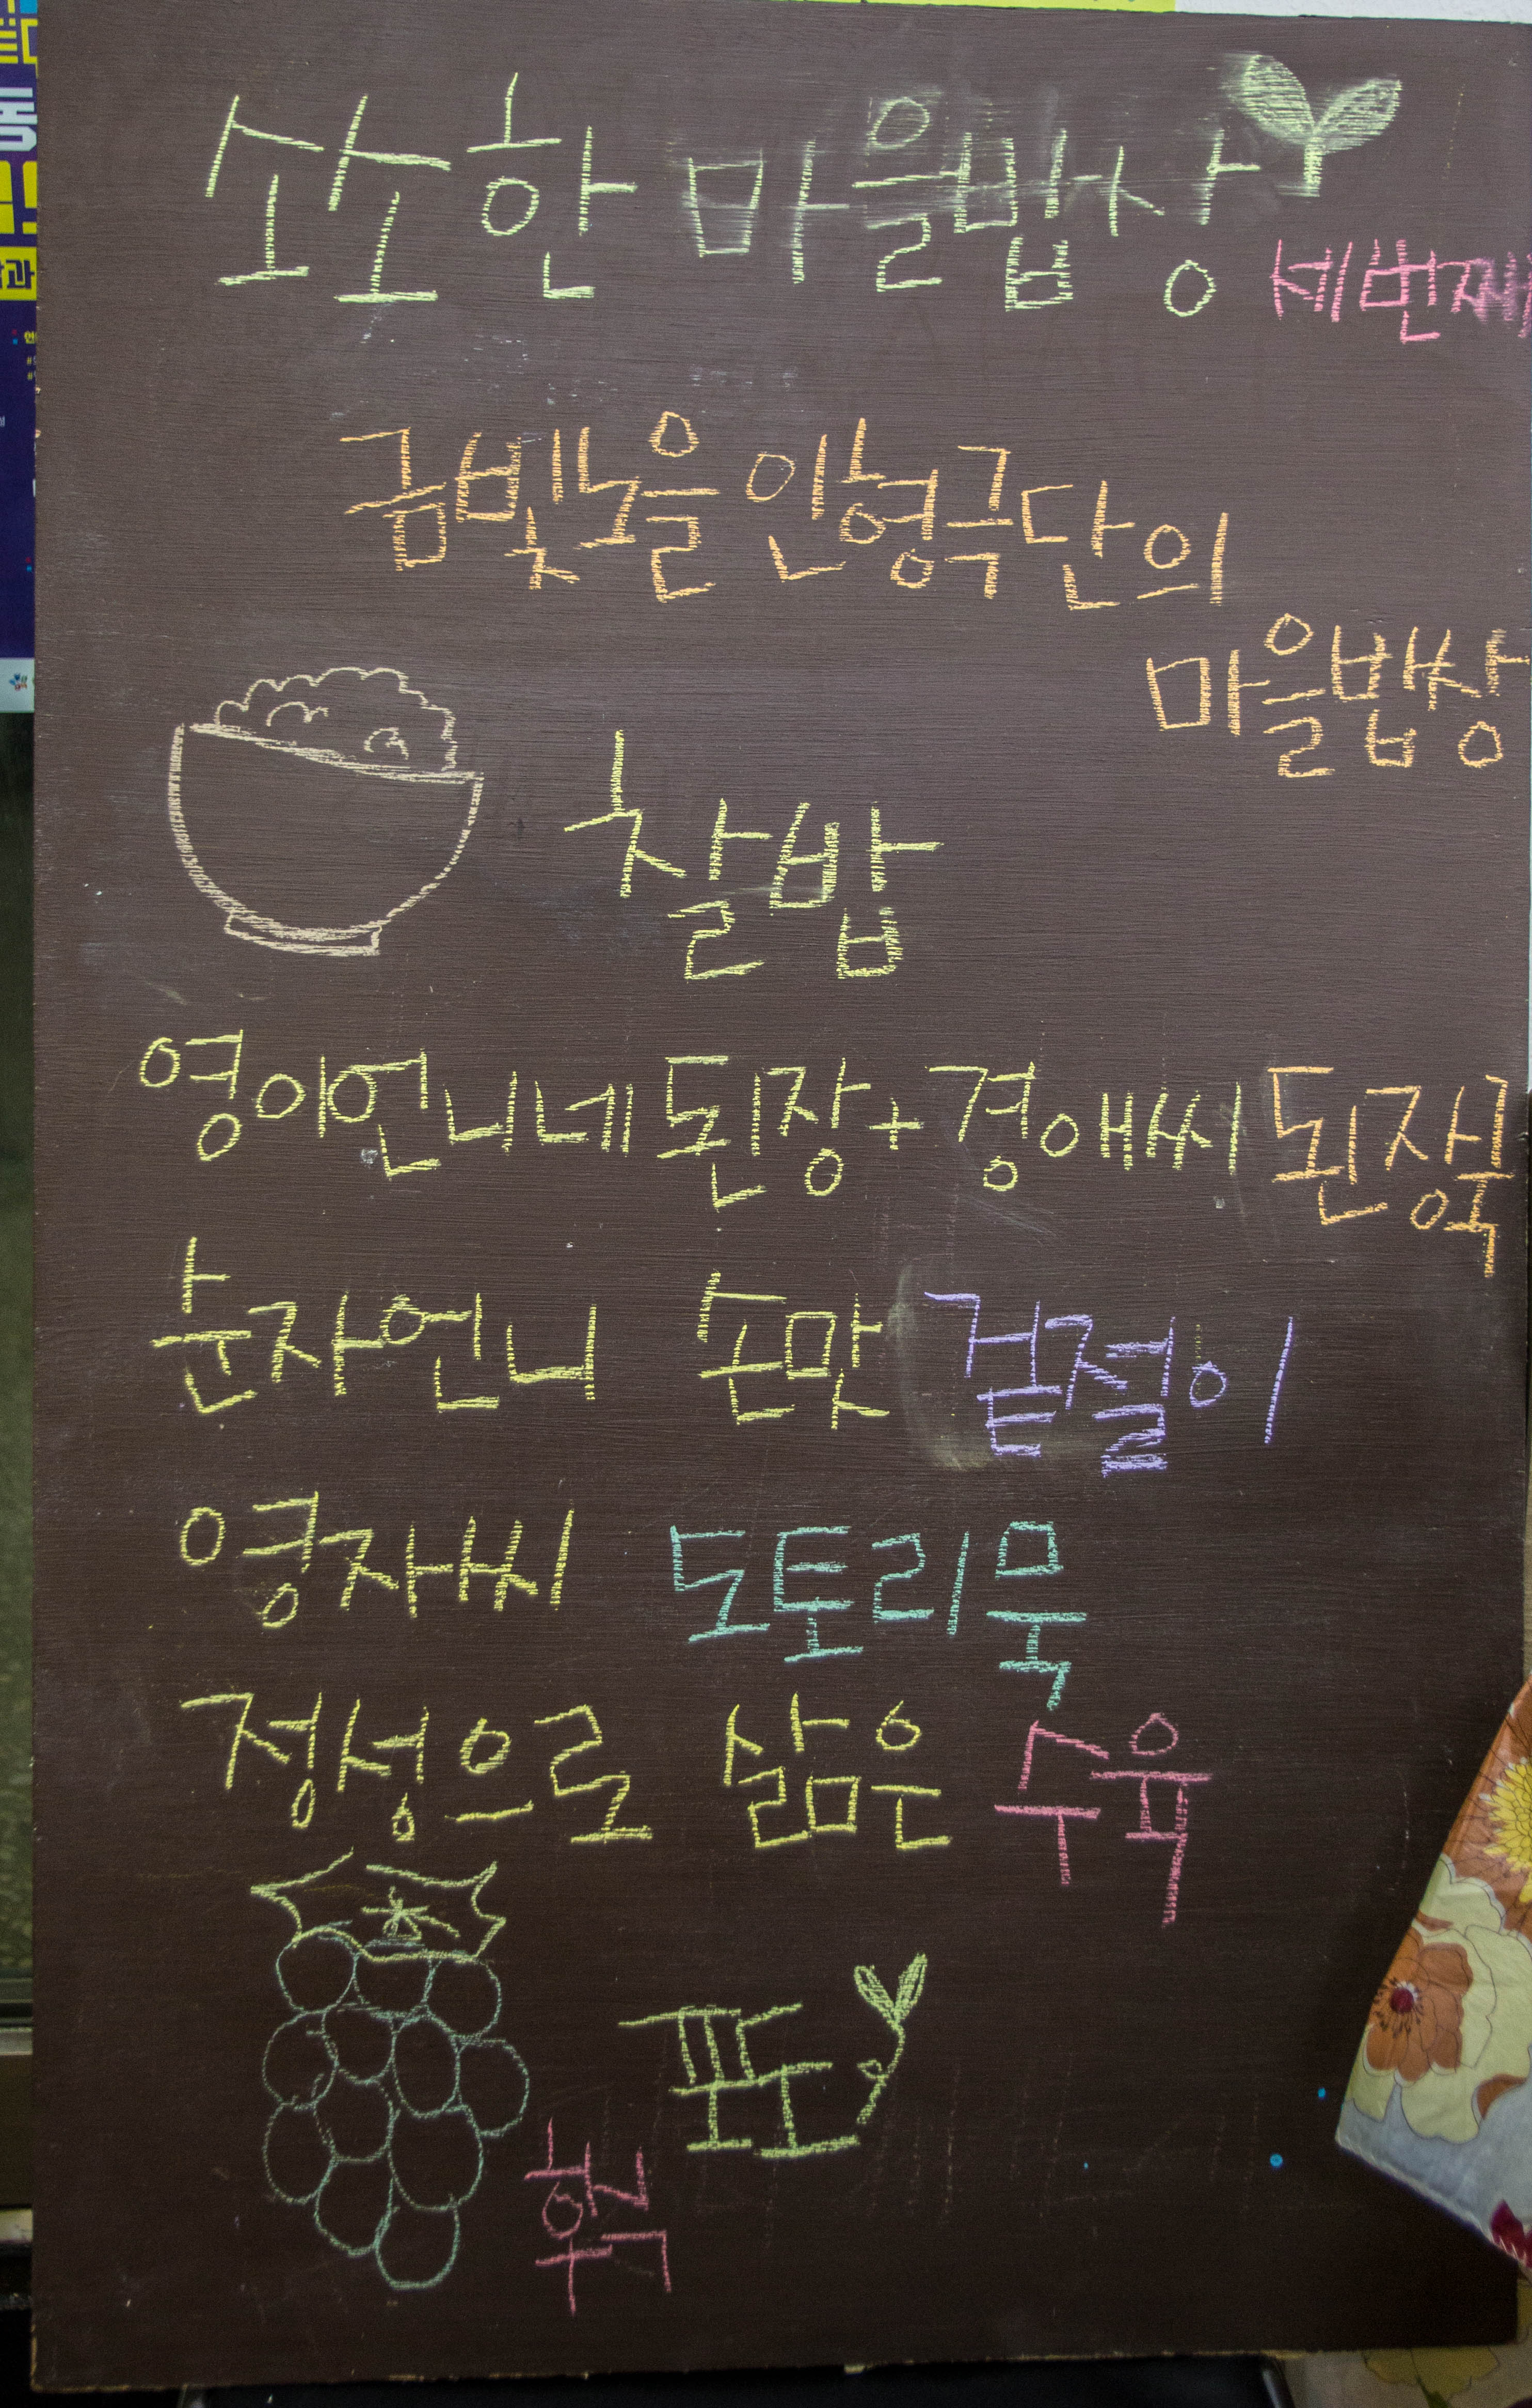 소소한 마을밥상
세번째
금빛노을인형극단의
마을밥상
찰밥
영이언니네 된장+경애씨 된장국
순자언니 손맛 겉절이
영자씨 도토리묵
정성으로 삶은 수육
포도
후식